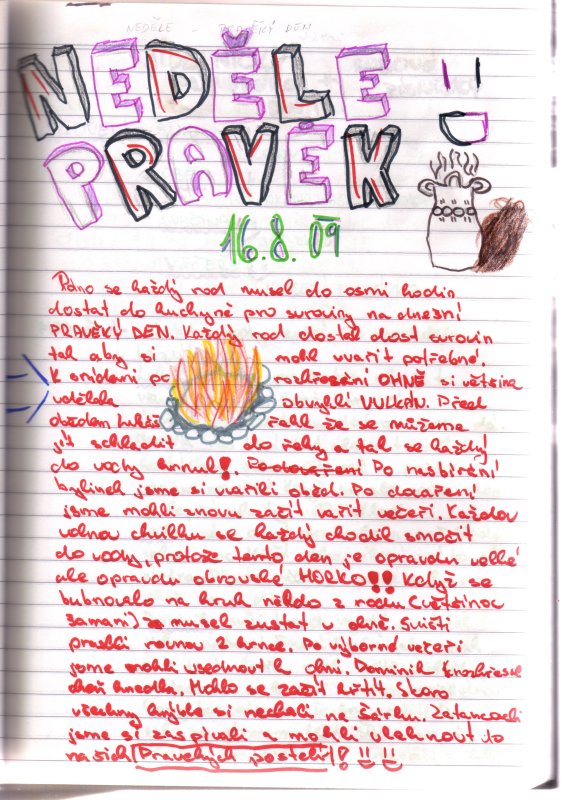 NEDĚLE - PRAVĚKÝ DEN
NEDĚLE
PRAVĚK
16.8.09
Ráno se každý rod musel do osmi hodin
dostat do kuchyně pro suroviny na dnešní
PRAVĚKÝ DEN. Každý rod dostal dost surovin
tak aby si mohl uvařit potřebné.
K snídani po rozkřesání OHNĚ si většina
udělala obvyklí VULKÁN. Před
obědem Lukáš řekl že se můžeme
jít schladit do řeky a tak se každý
do vody hrnul! Po nasbírání
bylinek jsme si uvařili oběd. Po dovaření
jsme mohli znovu začít vařit večeři. Každou
volnou chvilku se každý chodil smočit
do vody, protože tento den je opravdu velké
ale opravdu obrovské HORKO!! Když se
bubnovalo na kruh někdo z rodu (většinou
šamani) musel zustat u ohně. Svišti
praskli rovnou 2 hrnce. Po výborné večeři
jsme mohli usednout k ohni. Dominik rozkřesal
oheň hnedka. Mohlo se začít křtít. Skoro
všechny křtil si nechali na Šárku. Zatancovali
jsme si zazpívali a mohli ulehnout do
našich Pravekých postelí!